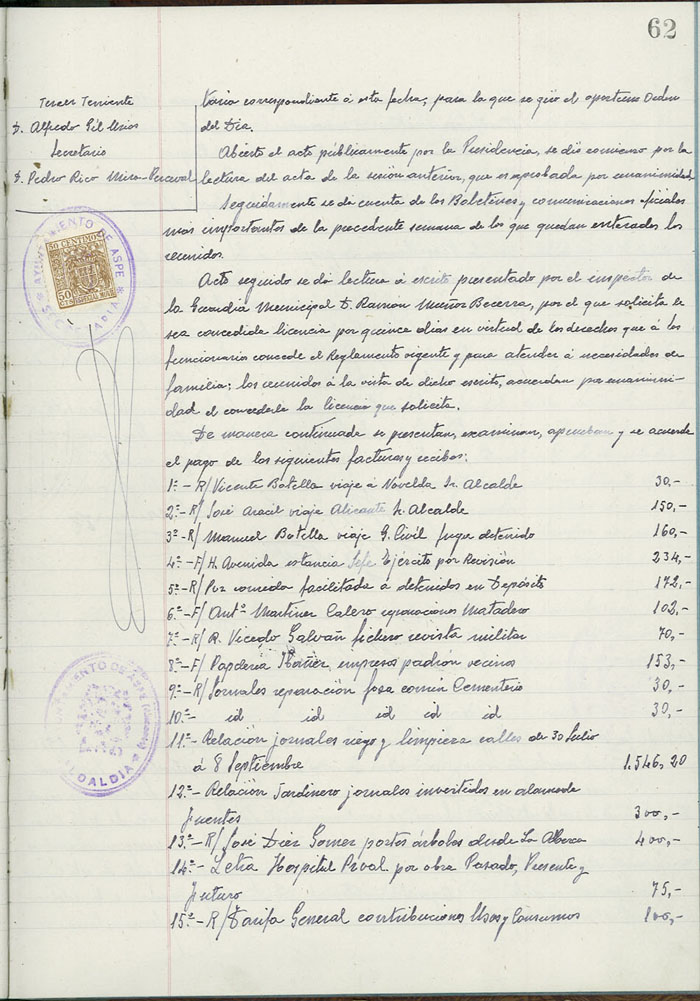 62
Tercer Teniente
D. Alfredo Gil Usios
Secretario
D. Pedro Rico Mira-Perceval
AYUNTAMIENTO DE ASPE
SECRETARIA
50 CENTIMOS
50
AYUNTAMIENTO DE ASPE (Alicante)
ALCALDIA
taria correspondiente á esta fecha, para la que se el oportuno Orden
del Día.
Abierto el acto públicamente por la Presidencia, se dió comienzo por la
lectura del acta de la sesión anterior, que es aprobada por unanimidad
Seguidamente se da cuenta de los Boletines y comunicaciones oficiales
mas importantes de la precedente semana de los que quedan enterados los
reunidos.
Acto seguido se da lectura á escrito presentado por el inspector de
la Guardia Municipal D. Ramón Muñoz Becerra, por el que solicita le
sea concedida licencia por quince dias en virtud de los derechos que á los
funcionarios concede el Reglamento vigente y para atender á necesidades de
familia: los reunidos á la vista de dicho escrito, acuerdan por unanimi-
dad el concederle la licencia que solicita.
De manera continuada se presentan, examinan, aprueban y se acuerda
el pago de los siguientes facturas y recibos:
1ª - R/ Vicente Botella viaje á Novelda Sr. Alcalde 30,-
2ª - R/ José Aracil viaje Alicante Sr. Alcalde 150,-
3ª - R/ Manuel Botella viaje G. Civil fuga detenido 160,-
4ª - F/ H. Avenida estancia Jefe Ejército por Revisión 234,-
5ª - R/ Por comida facilitada á detenidos en Depósito 172,-
6ª - F/ Antº Martinez Calero reparaciones Matadero 102,-
7ª - R/ R. Vicedo Galvañ fichero revista militar 70,-
8ª - F/ Papeleria Ibáñez impresos padrón vecinos 153,-
9ª - R/ Jornales reparación fosa común Cementerio 30,-
10ª - id id id id id 30,-
11ª - Relación jornales riego y limpieza calles de 30 Julio
á 8 Septiembre 1.546,20
12ª - Relación Jardinero jornales invertidos en alameda
fuentes 300,-
13ª - R/ José Diez Gomez portes árboles desde La Alberca 400,-
14ª - Letra Hospital Proval por obra Pasado, Presente y
Futuro 75,-
15ª - R/ Tarifa General contribuciones Usos y Consumos 100,-